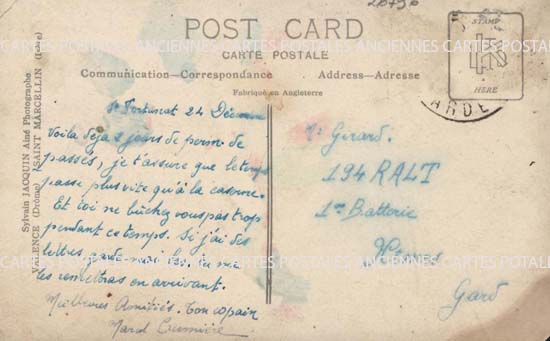 26796
POST CARD
CARTE POSTALE
Communication—Correspondance
Address—Adresse
Fabriqué en Angleterre
STAMP
HERE
ARDE
Sylvain JACQUIN Aîné Photographe
VALENCE (Drôme) SAINT MARCELLIN (Isère)
CARTES POSTALES ANCIENNES
St Fortunat 24 Décembre
Voila déja 2 jours de perm de
passés, je t'assure que le temps
passe plus vite qu'à la caserne.
Et toi ne bûchez vous pas trop
pendant ce temps. Si j'ai des
lettres, garde-moi les, tu me
les remettras en arrivant.
Meilleures Amitiés. Ton copain
Marcel
Mr Gerard.
194 RALT
1re Batterie
Nîmes
Gard